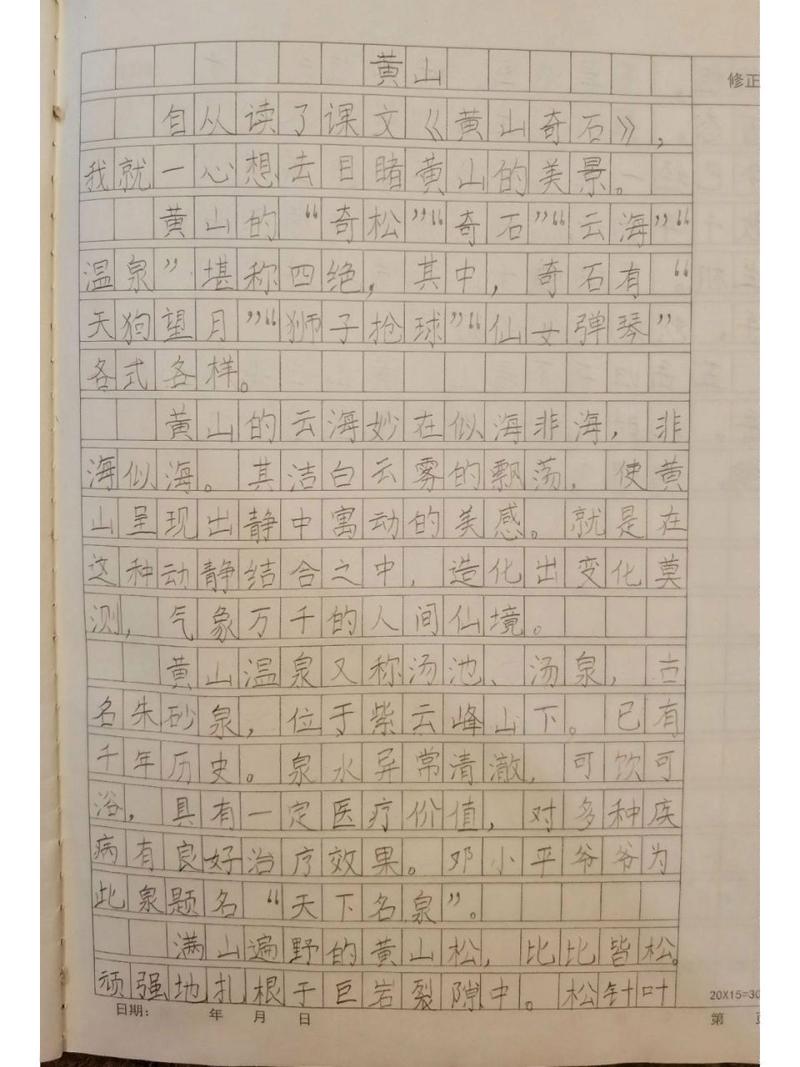 黄山
修正
自从读了课文《黄山奇石》，
我就一心想去目睹黄山的美景。
黄山的“奇松”“奇石”“云海”“
温泉”堪称四绝，其中，奇石有“
天狗望月”“狮子抢球”“仙女弹琴”
各式各样。
黄山的云海妙在似海非海，非
海似海。其洁白云雾的飘荡，使黄
山呈现出静中寓动的美感。就是在
这种动静结合之中，造化出变化莫
测，气象万千的人间仙境。
黄山温泉又称汤池、汤泉，古
名朱砂泉，位于紫云峰山下。已有
千年历史。泉水异常清澈，可饮可
浴，具有一定医疗价值，对多种疾
病有良好治疗效果。邓小平爷爷为
此泉题名“天下名泉”。
满山遍野的黄山松，比比皆松。
顽强地扎根于巨岩裂隙中。松针叶
20X15=30
日期： 年 月 日
第